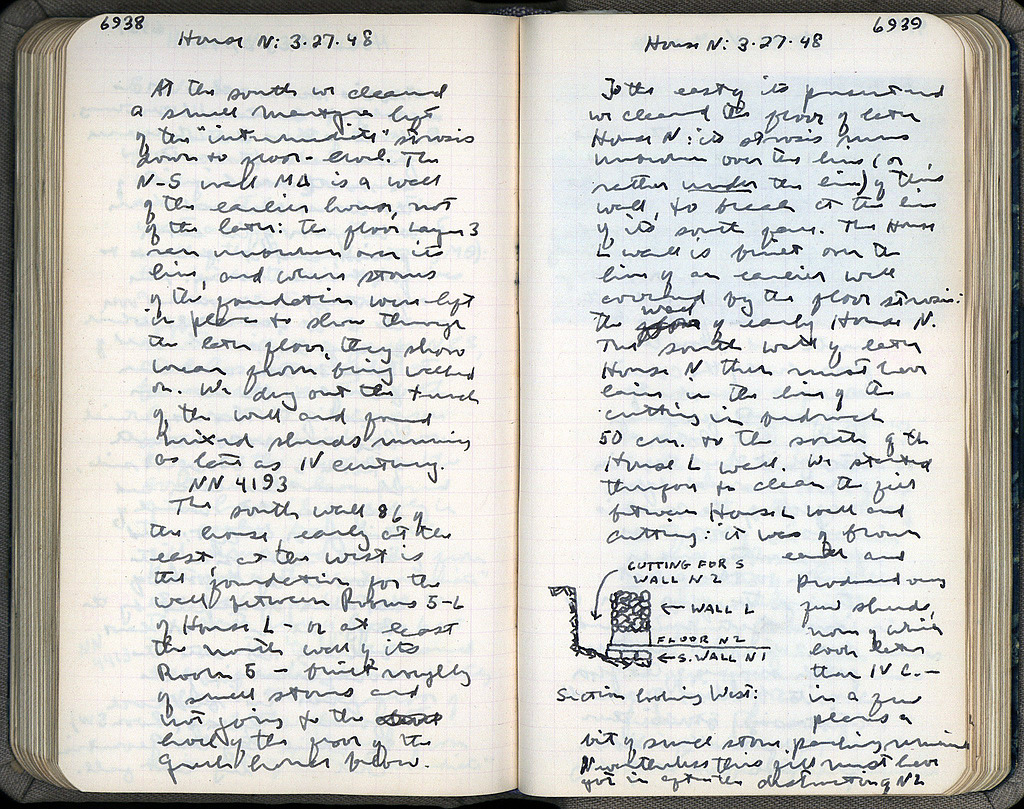 6938
House N: 3.27.48
At the south we cleaned
a small left
of the "intermediate" strosis
down to floor-level. The
N-S wall MΔ is a wall
of the earlier house, not
of the later: the floor Layer 3
ran over its
line, and where stones
of the foundation were left
in place to show through
the later floor, they show
wear from being walked
on. We dug out the trench
of the wall and found
mixed sherds running
as late as IV century.
NN 4193
The south wall 86 of
the house, early at the
east, at the west is
the foundation for the
wall between Rooms 5-6
of House L - or at least
the north wall of its
Room 5 - built roughly
of small stones and
not going to the
level of the floor of the
Greek house below.
6939
House N: 3.27.48
To the east of its
we cleaned the floor of later
House N: its strosis runs
unbroken over the line (or,
rather under the line) of this
wall, to break at the line
of its south face. The House
L wall is built over the
line of an earlier wall
covered by the floor strosis:
the wall of early House N.
The south wall of later
House N then must have
lain in the line of the
cutting in bedrock
50 cm. to the south of the
House L wall. We started
therefore to clean the fill
between House L wall and
cutting: it was of brown
earth and
produced very
few sherds,
none of which
look later
than IV C. -
in a few
places a
bit of small stone packing remained
Nevertheless this fill must have
got in after the destructing N2
CUTTING FOR S
WALL N2
← WALL L
FLOOR N2
← S. WALL N1
Section looking West: